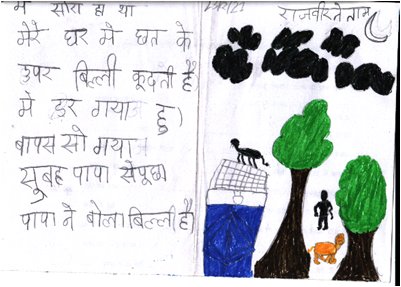 मे सोरा हा था
मेरे घर मे छत के
उपर बिल्ली कूदती है
मे डर गया हु।
बापस सो गया
सुबह पापा सेपूछा
पापा ने बोला बिल्ली है।
राजवीर नेताम